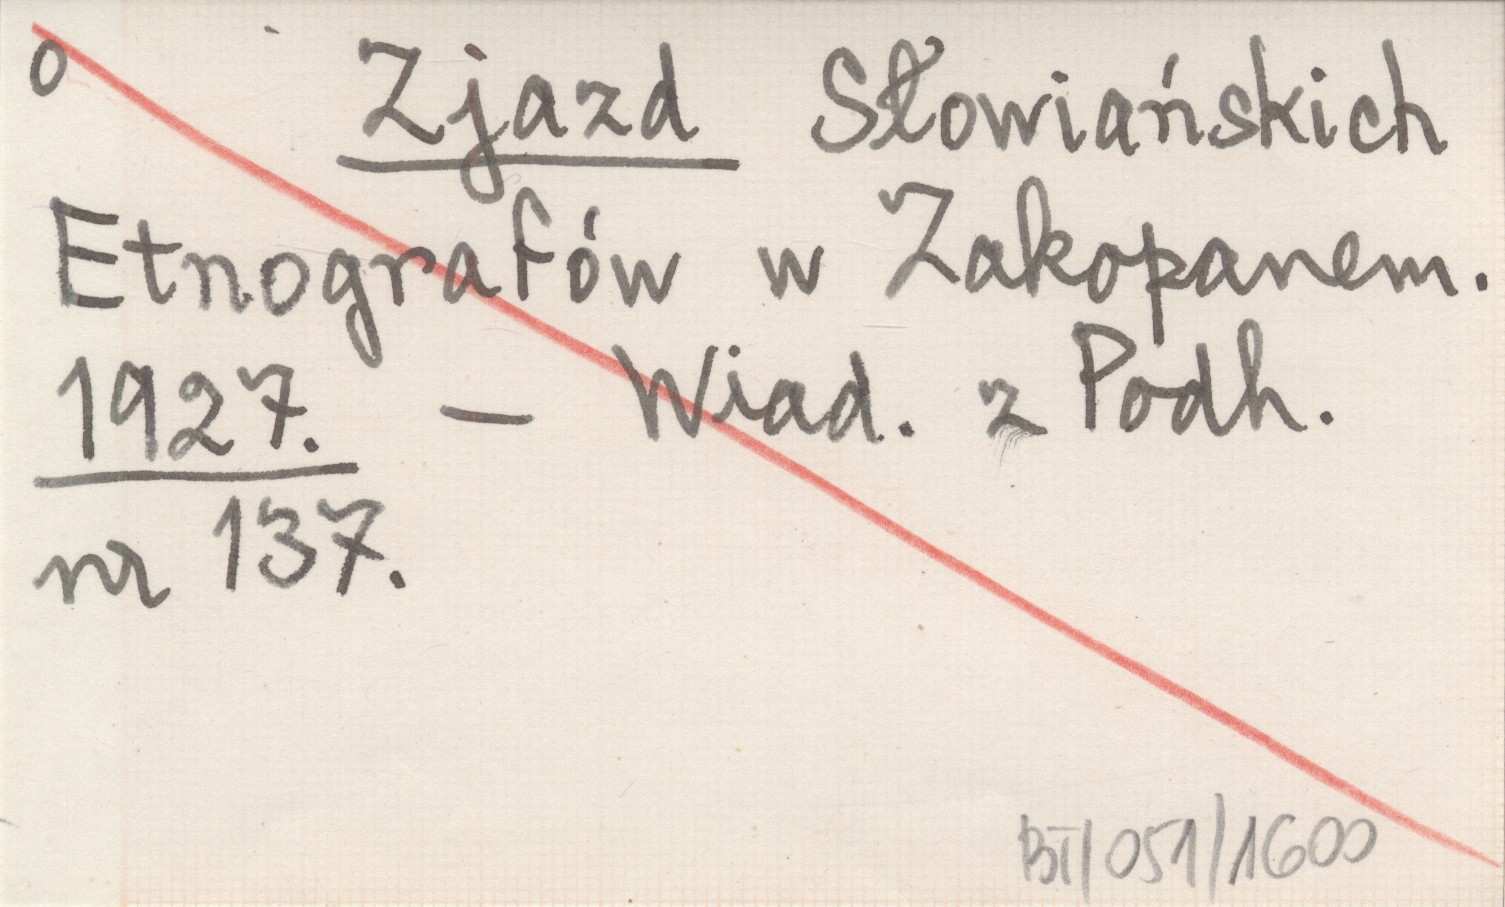 o Zjazd Słowiańskich
Etnografów w Zakopanem.
1927. — Wiad. z Podh.
nr 137.
BT/051/1600